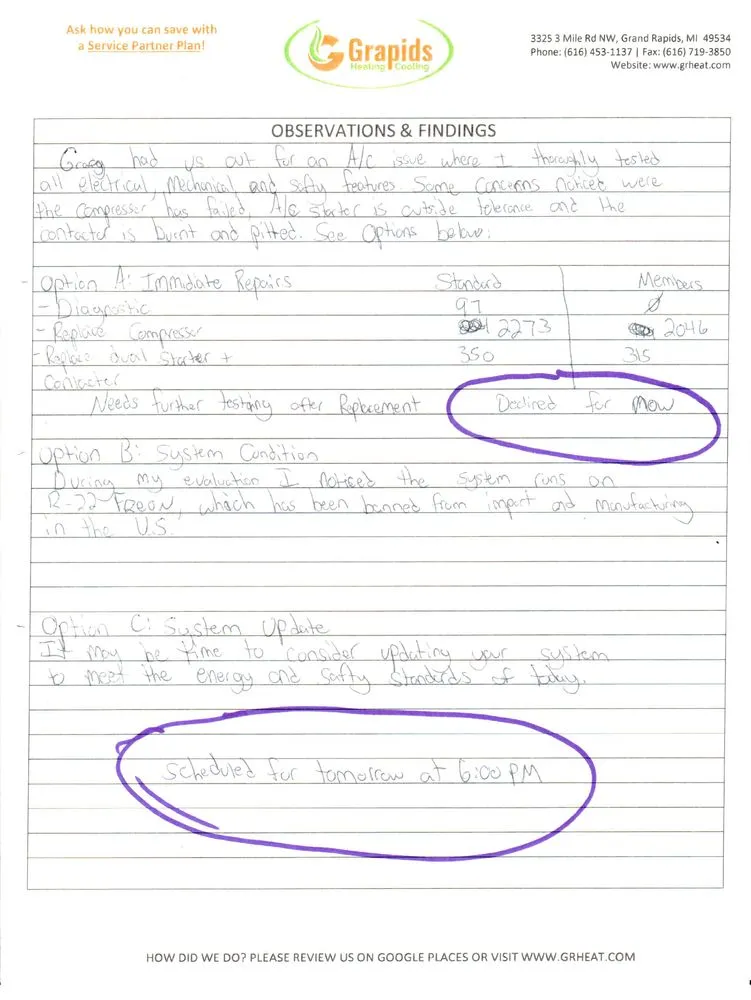 Ask how you can save with
a Service Partner Plan!
Grapids
Heating Cooling
3325 3 Mile Rd NW, Grand Rapids, MI 49534
Phone: (616) 453-1137 | Fax: (616) 719-3850
Website: www.grheat.com
OBSERVATIONS & FINDINGS
had us out for an A/c issue where I thoroughly tested
all electrical, Mechanical and safty features. Some Concerns noticed were
the Compressor has failed, A/C starter is outside tolerance and the
contactor is burnt and pitted. See Options below:
- Option A: Immidiate Repairs Standard Members
- Diagnostic 97 Ø
- Replace Compressor 2273 2046
- Replace dual Starter + 350 315
Contactor
Needs further testing after Replacement Declined for Now
- Option B: System Condition
During my evaluation I noticed the system runs on
R-22 FREON, which has been banned from import and manufacturing
in the U.S.
- Option C: System Update
It may be time to consider updating your system
to meet the energy and safty standards of today.
Scheduled for tomorrow at 6:00 PM
HOW DID WE DO? PLEASE REVIEW US ON GOOGLE PLACES OR VISIT WWW.GRHEAT.COM